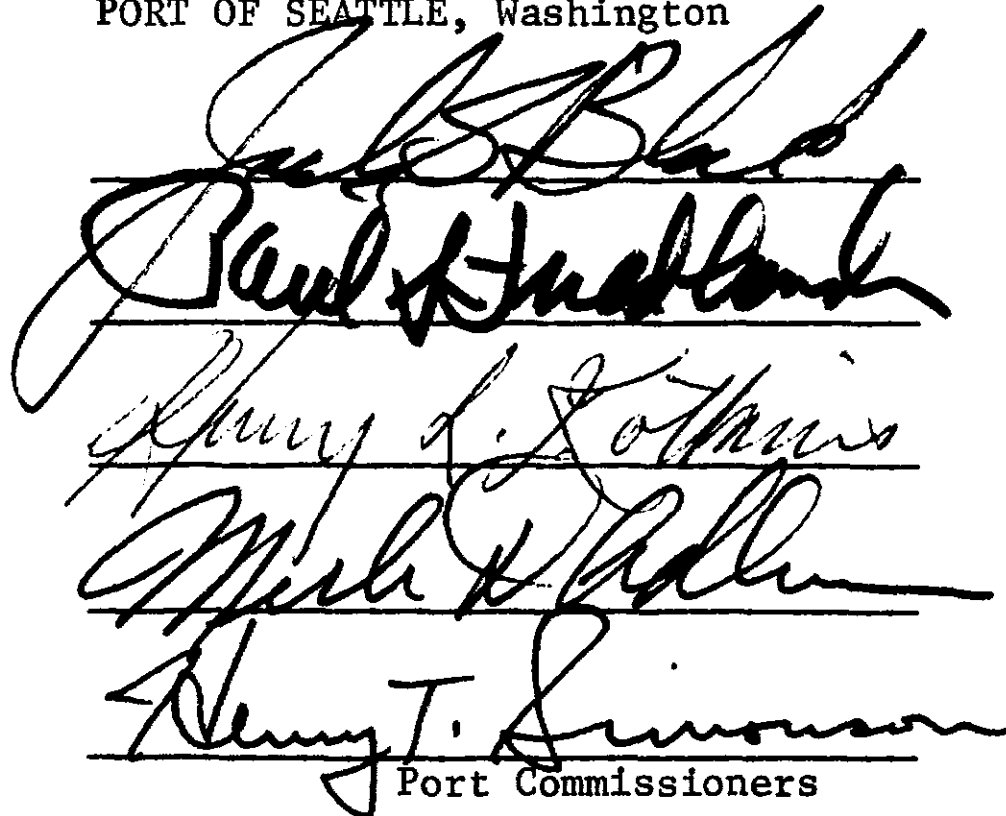 PORT OF SEATTLE, Washington
Jack S. Block
Paul S. Friedlander
Henry L. Kotkins
Merle D. Adlum
Henry T. Simonson
Port Commissioners